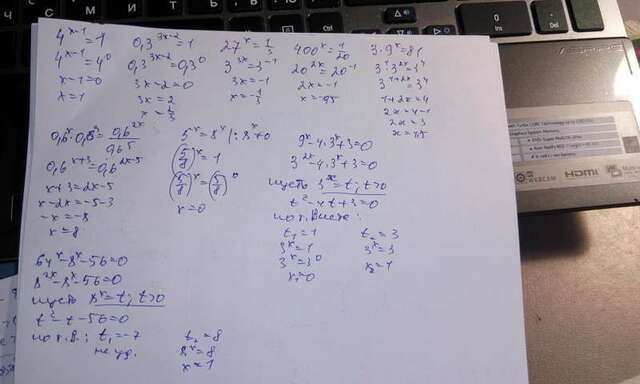 4^(x-1)=1
4^(x-1)=4^0
x-1=0
x=1
0,3^(3x-2)=1
0,3^(3x-2)=0,3^0
3x-2=0
3x=2
x=2/3
27^x=1/3
3^(3x)=3^(-1)
3x=-1
x=-1/3
400^x=1/20
20^(2x)=20^(-1)
2x=-1
x=-0,5
3·9^x=81
3^1·3^(2x)=3^4
3^(1+2x)=3^4
1+2x=4
2x=4-1
2x=3
x=1,5
0,6^x·0,6^3=0,6^(2x)/0,6^5
0,6^(x+3)=0,6^(2x-5)
x+3=2x-5
x-2x=-5-3
-x=-8
x=8
5^x=8^x |:8^x≠0
(5/8)^x=1
(5/8)^x=(5/8)^0
x=0
9^x-4·3^x+3=0
3^(2x)-4·3^x+3=0
пусть 3^x=t; t>0
t^2-4t+3=0
по т. Виета:
t₁=1 t₂=3
3^x=1 3^x=3
3^x=3^0 x₂=1
x₁=0
64^x-8^x-56=0
8^(2x)-8^x-56=0
пусть 8^x=t; t>0
t^2-t-56=0
по т.В.; t₁=-7 t₂=8
не уд. 8^x=8
x=1
0
Ins
Del
HDMI
WEBCAM